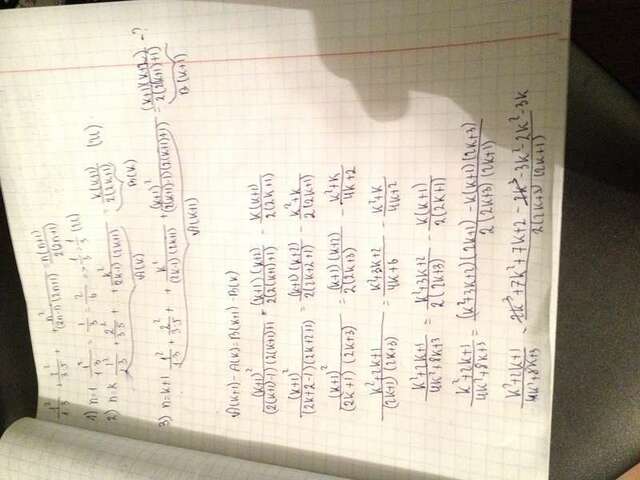 1²/1·3 + 2²/3·5 + + n²/(2n-1)(2n+1) = n(n+1)/2(2n+1)
1) n=1 1²/1·3 = 1/3 = 2/6 = 1/3 (И)
2) n=k 1²/1·3 + 2²/3·5 + + k²/(2k-1)(2k+1) = k(k+1)/2(2k+1) (И)
A(k) B(k)
3) n=k+1 1²/1·3 + 2²/3·5 + + k²/(2k-1)(2k+1) + (k+1)²/(2(k+1)-1)(2(k+1)+1) = (k+1)(k+2)/2(2(k+1)+1) - ?
A(k+1) B(k+1)
A(k+1) - A(k) = B(k+1) - B(k)
(k+1)²/(2(k+1)-1)(2(k+1)+1) = (k+1)(k+2)/2(2(k+1)+1) - k(k+1)/2(2k+1)
(k+1)²/(2k+2-1)(2k+2+1) = (k+1)(k+2)/2(2k+2+1) - k²+k/2(2k+1)
(k+1)²/(2k+1)(2k+3) = (k+1)(k+2)/2(2k+3) - k²+k/4k+2
k²+2k+1/(2k+1)(2k+3) = k²+3k+2/4k+6 - k²+k/4k+2
k²+2k+1/4k²+8k+3 = k²+3k+2/2(2k+3) - k(k+1)/2(2k+1)
k²+2k+1/4k²+8k+3 = (k²+3k+2)(2k+1) - k(k+1)(2k+3)/2(2k+3)(2k+1)
k²+2k+1/4k²+8k+3 = 2k³+7k²+7k+2-2k³-3k²-2k²-3k/2(2k+3)(2k+1)